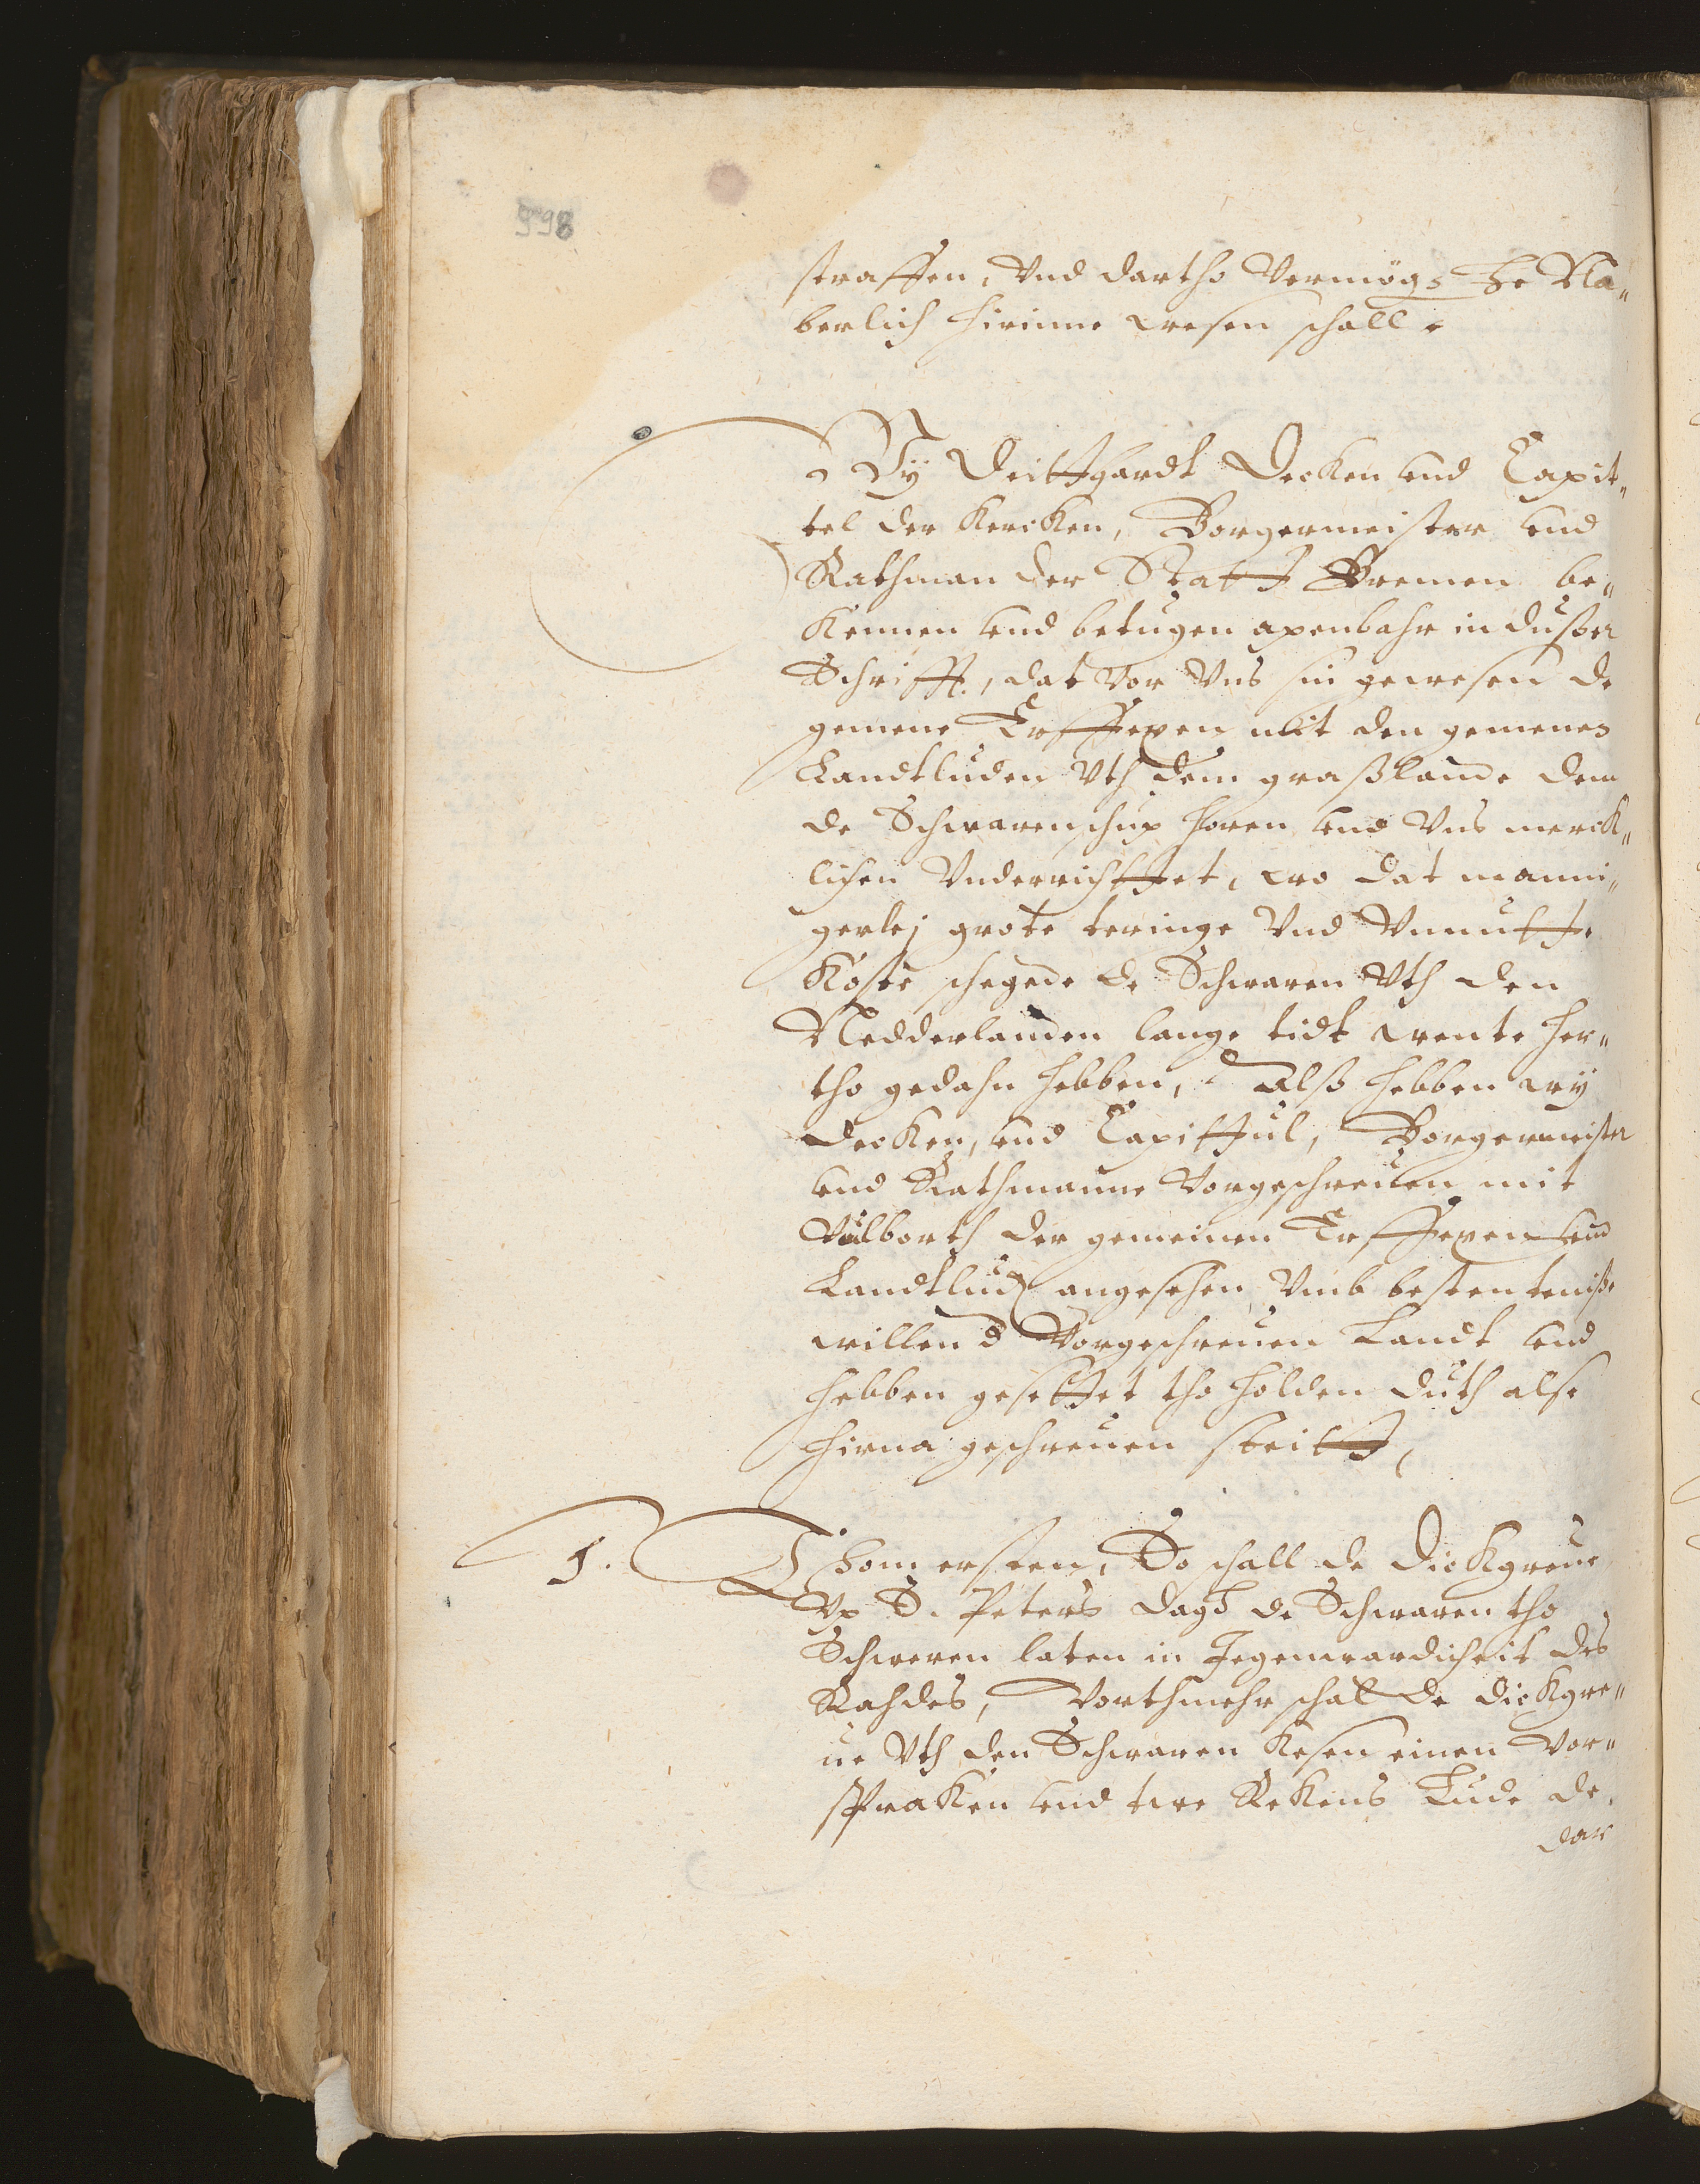 998
straffen, Vnd dartho Vermögs He Na„
berlich hirinne wesen schall.
Wÿ Deittgardt Decken vnd Capit„
tel der Kercken, Borgermeister vnd
Rathman der Statt Bremen be„
kennen vnd betugen apenbahr in dußer
Schrifft, dat vor Vns sin gewesen de
gemene Erffexen mit den gemenen
Landtluden Vth dem graßlande dem
de Schwarenschup horen vnd Vns merck„
lichen Vnderrichttet, wo dat manni„
gerlej grote teringe Vnd Vnnutte
Koste schegede de Schwaren Vth den
Nedderlanden lange tidt wente her„
tho gedahn hebben, Alß hebben wÿ
Decken, vnd Capittul, Borgermeister
vnd Rathmanne Vorgeschreuen mit
Vulborth der gemeinen Erffexen vnd
Landtlud angesehen Vmb bestentenisse
willen d Vorgeschreuen Landt vnd
hebben gesettet tho holden duth alse
hirna geschreuen steitt,
1. Thom ersten, So schall de Dickgreue
Vp S. Peters dagh de Schwaren tho
Schweren laten in Jegenwardicheit des
Rahdes, Vorthmehr schal de Dickgre„
ue Vth den Schwaren kesen einen Vor„
spraken vnd twe Rekens Lude de
dar